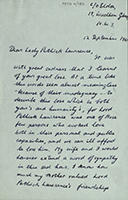 c/o Elder,
N.W.3.
12 September 1961
Dear Lady Pethick Lawrence,
It was
with great sadness that I learned
of your great loss. At a time like
this words seem almost meaningless
because of their inadequacy - to
describe this loss which is both
yours and humanity's, for Lord
Pethick Lawrence was one of those
few persons who worked hard
both in their personal and public
capacities, and we can ill afford
to lose him. My wife and I would
however extend a word of sympathy
in this sad hour. I know how
much my mother valued Lord
Pethick Lawrence's friendship